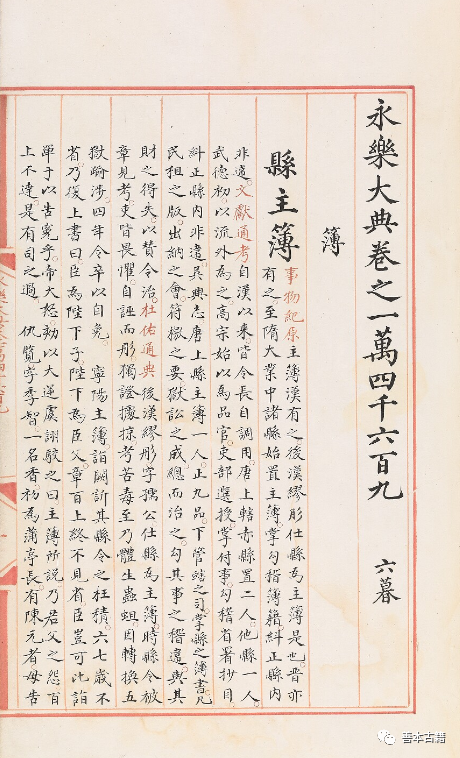 永樂大典卷之一萬四千六百九 六暮
簿
縣主簿
事物紀原主簿漢有之後漢繆肜仕縣爲主簿是也晉亦
有之至隋大業中諸縣始置主簿掌勾稽簿籍糾正縣內
非違文獻通考自漢以來皆令長自調用唐上轄赤縣置二人他縣一人
武德初以流外爲之高宗始以爲品官吏部選授掌付事勾稽省署抄目
糾正縣內非違吳興志唐上縣主簿一人正九品下管轄之司掌縣之簿書凡
民租之版出納之會符檄之要獄訟之成總而治之勾其事之稽違與其
財之得失以贊令治杜佑通典後漢繆肜字孺公仕縣爲主簿時縣令被
章見考吏皆畏懼自誣而肜獨證據掠考苦毒至乃體生蟲蛆因轉換五
獄踰涉四年令卒以自免 寧陽主簿詣闕訴其縣令之枉積六七歲不
省乃復上書曰臣爲陛下子陛下爲臣父章百上終不見省臣豈可北詣
單于以告冤乎帝大怒劾以大逆虞詡駮之曰主簿所說乃君父之怨百
上不達是有司之過 仇覽字季智一名香初爲蒲亭長有陳元者母告
善本古籍